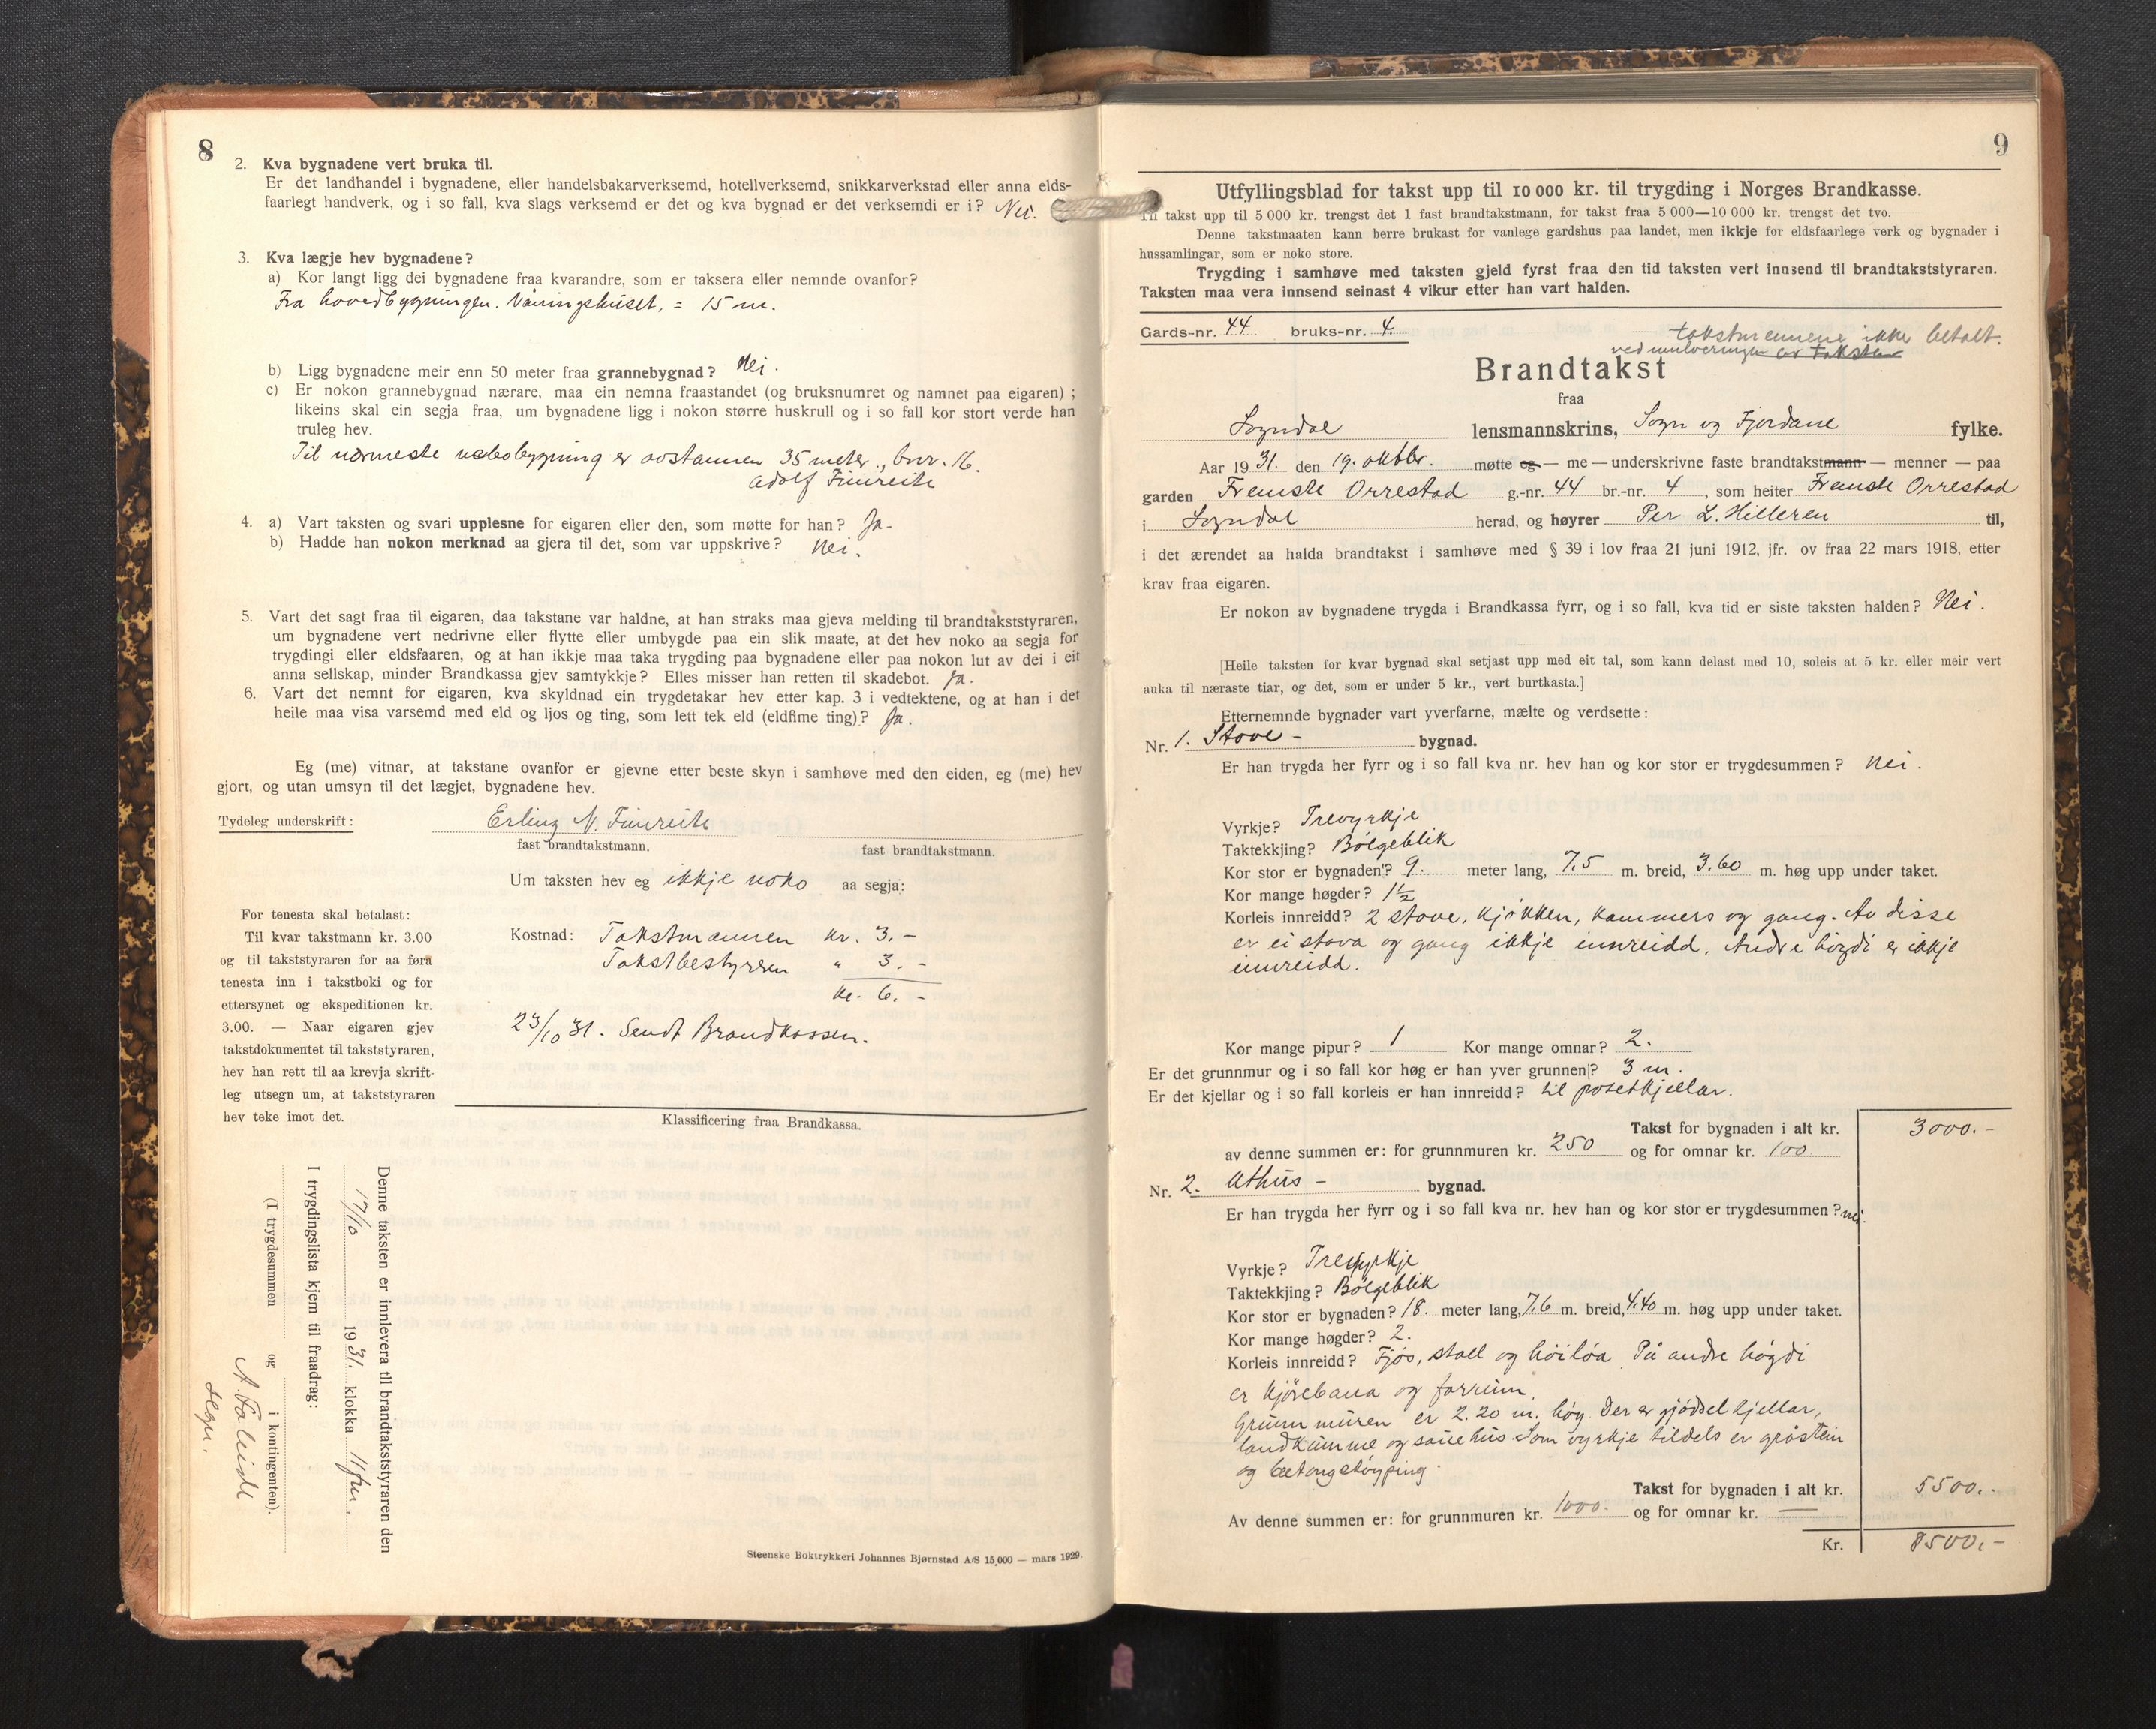 8
2. Kva bygnadene vert bruka til.
Er det landhandel i bygnadene, eller handelsbakarverksemd, hotellverksemd, snikkarverkstad eller anna elds-
faarlegt handverk, og i so fall, kva slags verksemd er det og kva bygnad er det verksemdi er i? Nei.
3. Kva lægje hev bygnadene?
a) Kor langt ligg dei bygnadene fraa kvarandre, som er taksera eller nemnde ovanfor?
Fra hovedbygningen. Våningshuset. = 15 m.
b) Ligg bygnadene meir enn 50 meter fraa grannebygnad? Nei.
c) Er nokon grannebygnad nærare, maa ein nemna fraastandet (og bruksnumret og namnet paa eigaren);
likeins skal ein segja fraa, um bygnadene ligg i nokon større huskrull og i so fall kor stort verde han
truleg hev.
Til nærmeste nabobygning er avstannen 35 meter., bnr. 16.
Adolf Fimreite
4. a) Vart taksten og svari upplesne for eigaren eller den, som møtte for han? Ja.
b) Hadde han nokon merknad aa gjera til det, som var uppskrive? Nei.
5. Vart det sagt fraa til eigaren, daa takstane var haldne, at han straks maa gjeva melding til brandtakststyraren,
um bygnadene vert nedrivne eller flytte eller umbygde paa ein slik maate, at det hev noko aa segja for
trygdingi eller eldsfaaren, og at han ikkje maa taka trygding paa bygnadene eller paa nokon lut av dei i eit
anna sellskap, minder Brandkassa gjev samtykkje? Elles misser han retten til skadebot. Ja.
6. Vart det nemnt for eigaren, kva skyldnad ein trygdetakar hev etter kap. 3 i vedtektene, og at han i det
heile maa visa varsemd med eld og ljos og ting, som lett tek eld (eldfime ting)? Ja.
Eg (me) vitnar, at takstane ovanfor er gjevne etter beste skyn i samhøve med den eiden, eg (me) hev
gjort, og utan umsyn til det lægjet, bygnadene hev.
Tydeleg underskrift: Erling N. Fimreite
fast brandtakstmann. fast brandtakstmann.
Um taksten hev eg ikkje noko aa segja:
For tenesta skal betalast:
Til kvar takstmann kr. 3.00
og til takststyraren for aa føra
tenesta inn i takstboki og for
ettersynet og ekspeditionen kr.
3.00. — Naar eigaren gjev
takstdokumentet til takststyraren,
hev han rett til aa krevja skrift-
leg utsegn um, at takststyraren
hev teke imot det.
Kostnad: Takstmannen kr. 3.-
Takstbestyreren " 3.-
kr. 6.-
23/10 31. Sendt Brandkassen.
Klassificering fraa Brandkassa.
Denne taksten er innlevera til brandtakststyraren den
17/10 1931. klokka 11 fm.
I trygdingslista kjem til fraadrag:
(I trygdesummen og i kontingenten).
Steenske Boktrykkeri Johannes Bjørnstad A/S 15,000 — mars 1929.
9
Utfyllingsblad for takst upp til 10 000 kr. til trygding i Norges Brandkasse.
Til takst upp til 5 000 kr. trengst det 1 fast brandtakstmann, for takst fraa 5 000—10 000 kr. trengst det tvo.
Denne takstmaaten kann berre brukast for vanlege gardshus paa landet, men ikkje for eldsfaarlege verk og bygnader i
hussamlingar, som er noko store.
Trygding i samhøve med taksten gjeld fyrst fraa den tid taksten vert innsend til brandtakststyraren.
Taksten maa vera innsend seinast 4 vikur etter han vart halden.
Gards-nr. 44 bruks-nr. 4.
takstmennene ikke betalt.
ved innleveringen av taksten
Brandtakst
fraa
Sogndal lensmannskrins, Sogn og Fjordane fylke.
Aar 1931. den 19. oktbr. møtte eg — me — underskrivne faste brandtakstmann — menner — paa
garden Fremste Orrestad g.-nr. 44 br.-nr. 4, som heiter Fremste Orrestad
i Sogndal herad, og høyrer Per L. Hilleren til,
i det ærendet aa halda brandtakst i samhøve med § 39 i lov fraa 21 juni 1912, jfr. ov fraa 22 mars 1918, etter
krav fraa eigaren.
Er nokon av bygnadene trygda i Brandkassa fyrr, og i so fall, kva tid er siste taksten halden? Nei.
[Heile taksten for kvar bygnad skal setjast upp med eit tal, som kann delast med 10, soleis at 5 kr. eller meir vert
auka til næraste tiar, og det, som er under 5 kr., vert burtkasta.]
Etternemnde bygnader vart yverfarne, mælte og verdsette:
Nr. 1. Stove - bygnad.
Er han trygda her fyrr og i so fall kva nr. hev han og kor stor er trygdesummen? Nei.
Vyrkje? Trevyrkje
Taktekkjing? Bölgeblik
Kor stor er bygnaden? 9. meter lang, 7.5 m. breid, 3.60 m. høg upp under taket.
Kor mange høgder? 1½
Korleis innreidd? 2 stove, kjøkken, kammers og gang. Av disse
er ei stova og gang ikkje innreidd. Andre högdi er ikkje
innreidd.
Kor mange pipur? 1 Kor mange omnar? 2.
Er det grunnmur og i so fall kor høg er han yver grunnen? 3 m.
Er det kjellar og i so fall korleis er han innreidd? til potetkjellar.
Takst for bygnaden i alt kr. 3000.-
av denne summen er: for grunnmuren kr. 250 og for omnar kr. 100
Nr. 2. Uthus - bygnad.
Er han trygda her fyrr og i so fall kva nr. hev han og kor stor er trygdesummen? nei.
Vyrkje? Trevyrkje
Taktekkjing? Bölgeblik
Kor stor er bygnaden? 18. meter lang, 7.6 m. breid, 4.40 m. høg upp under taket.
Kor mange høgder? 2.
Korleis innreidd? Fjös, stall og höilöa. På andre högdi
er kjörebana og forrum.
Grunnmuren er 2.20 m. höy. Der er gjödselkjellar,
landkumme og sauehus som vyrkje tildels er gråstein
og betongstöyping.
Takst for bygnaden i alt kr. 5500.-
Av denne summen er: for grunnmuren kr. 1000. og for omnar kr. —
Kr. 8500.-